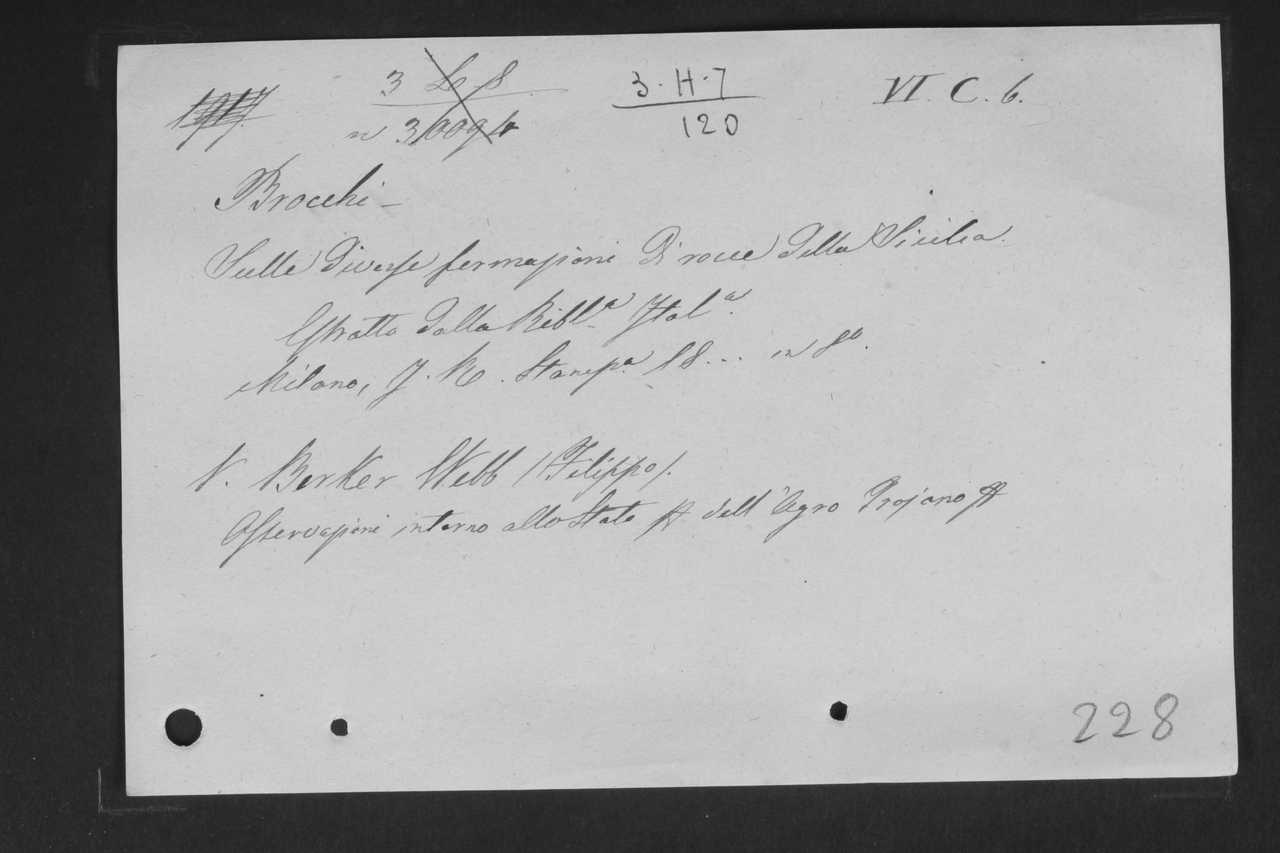 3 L 8 3.H.7 VI. C. 6.
n 3009 120
Brocchi -
Sulle diverse formazioni di rocce della Sicilia.
Estratto dalla Bibl.a Ital.a
Milano, J. R. Stamp.a 18... in 8o.
V. Barker Webb (Filippo).
Osservazioni intorno allo Stato dell'Agro Trojano
228